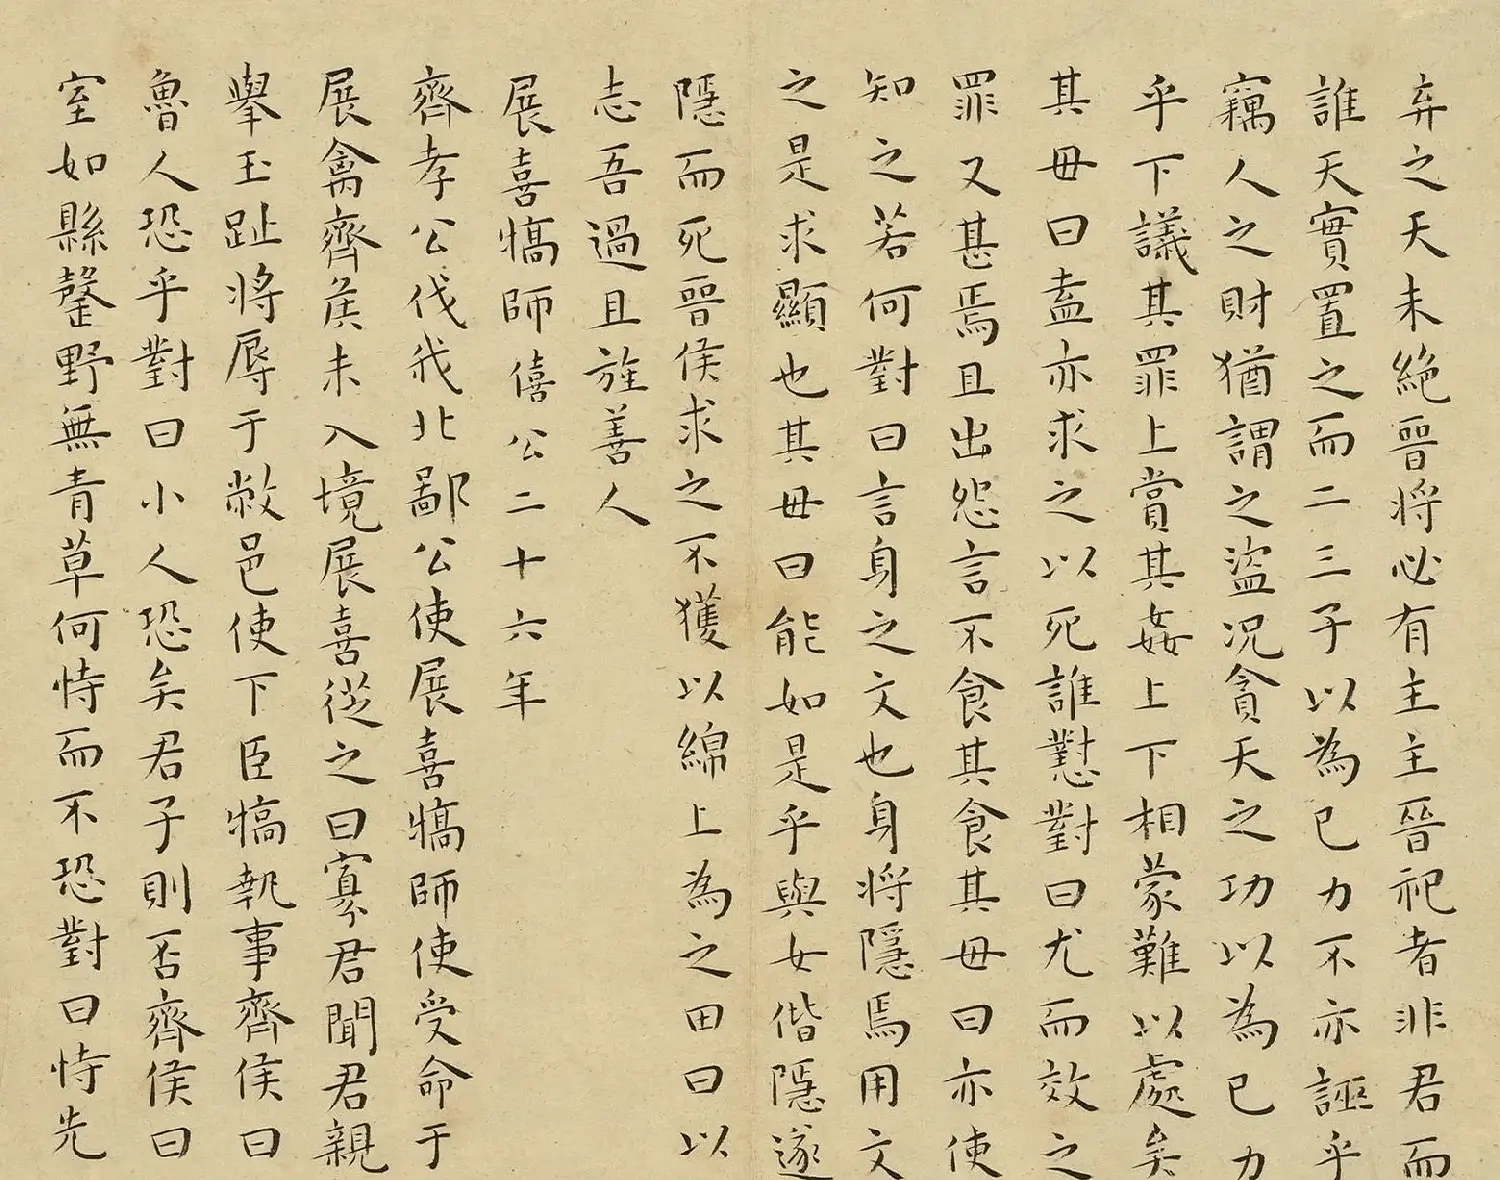 弃之天未絕晉將必有主主晉祀者非君而
誰天實置之而二三子以為已力不亦誣乎
竊人之財猶謂之盜況貪天之功以為已力
乎下議其罪上賞其姦上下相蒙難以處矣
其毋曰盍亦求之以死誰懟對曰尤而效之
罪又甚焉且出怨言不食其食其毋曰亦使
知之若何對曰言身之文也身將隱焉用文
之是求顯也其毋曰能如是乎與女偕隱遂
隱而死晉侯求之不獲以綿上為之田曰以
志吾過且旌善人
展喜犒師僖公二十六年
齊孝公伐我北鄙公使展喜犒師使受命于
展禽齊侯未入境展喜從之曰寡君聞君親
舉玉趾將辱于敝邑使下臣犒執事齊侯曰
魯人恐乎對曰小人恐矣君子則否齊侯曰
室如縣罄野無青草何恃而不恐對曰恃先